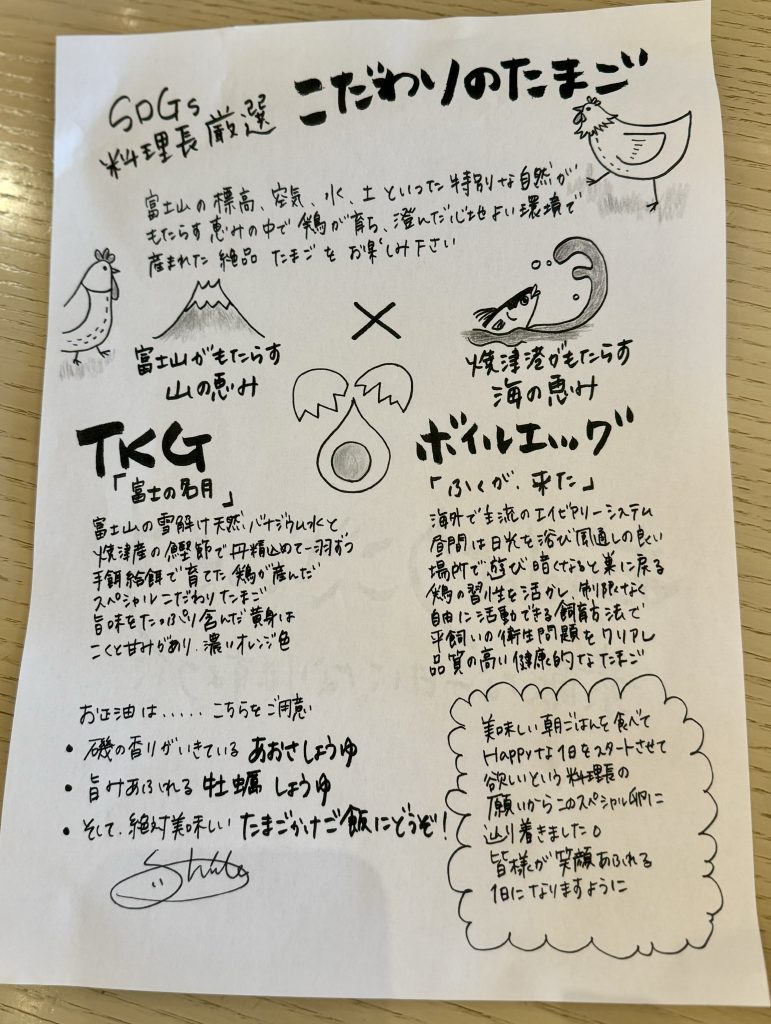 SDGs
料理長厳選
こだわりのたまご
富士山の標高、空気、水、土といった特別な自然が
もたらす恵みの中で鶏が育ち、澄んだ心地よい環境で
産まれた絶品たまごをお楽しみ下さい
富士山がもたらす
山の恵み
×
焼津港がもたらす
海の恵み
TKG
「富士の名月」
富士山の雪解け天然バナジウム水と、
焼津産の鰹節で丹精込めて一羽ずつ
手餌給餌で育てた鶏が産んだ
スペシャルこだわりたまご
旨味をたっぷり含んだ黄身は
こくと甘みがあり、濃いオレンジ色
お正油は.....こちらをご用意
・磯の香りがいきている あおさしょうゆ
・旨みあふれる 牡蠣しょうゆ
・そして、絶対美味しい たまごかけご飯にどうぞ!
ボイルエッグ
「ふくが、来た」
海外で主流のエイビアリーシステム
昼間は日光を浴び風通しの良い
場所で遊び暗くなると巣に戻る
鶏の習性を活かし、制限なく
自由に活動できる飼育方法で
平飼いの衛生問題をクリアし
品質の高い健康的なたまご
美味しい朝ごはんを食べて
Happyな1日をスタートさせて
欲しいという料理長の
願いからこのスペシャル卵に
辿り着きました。
皆様が笑顔あふれる
1日になりますように